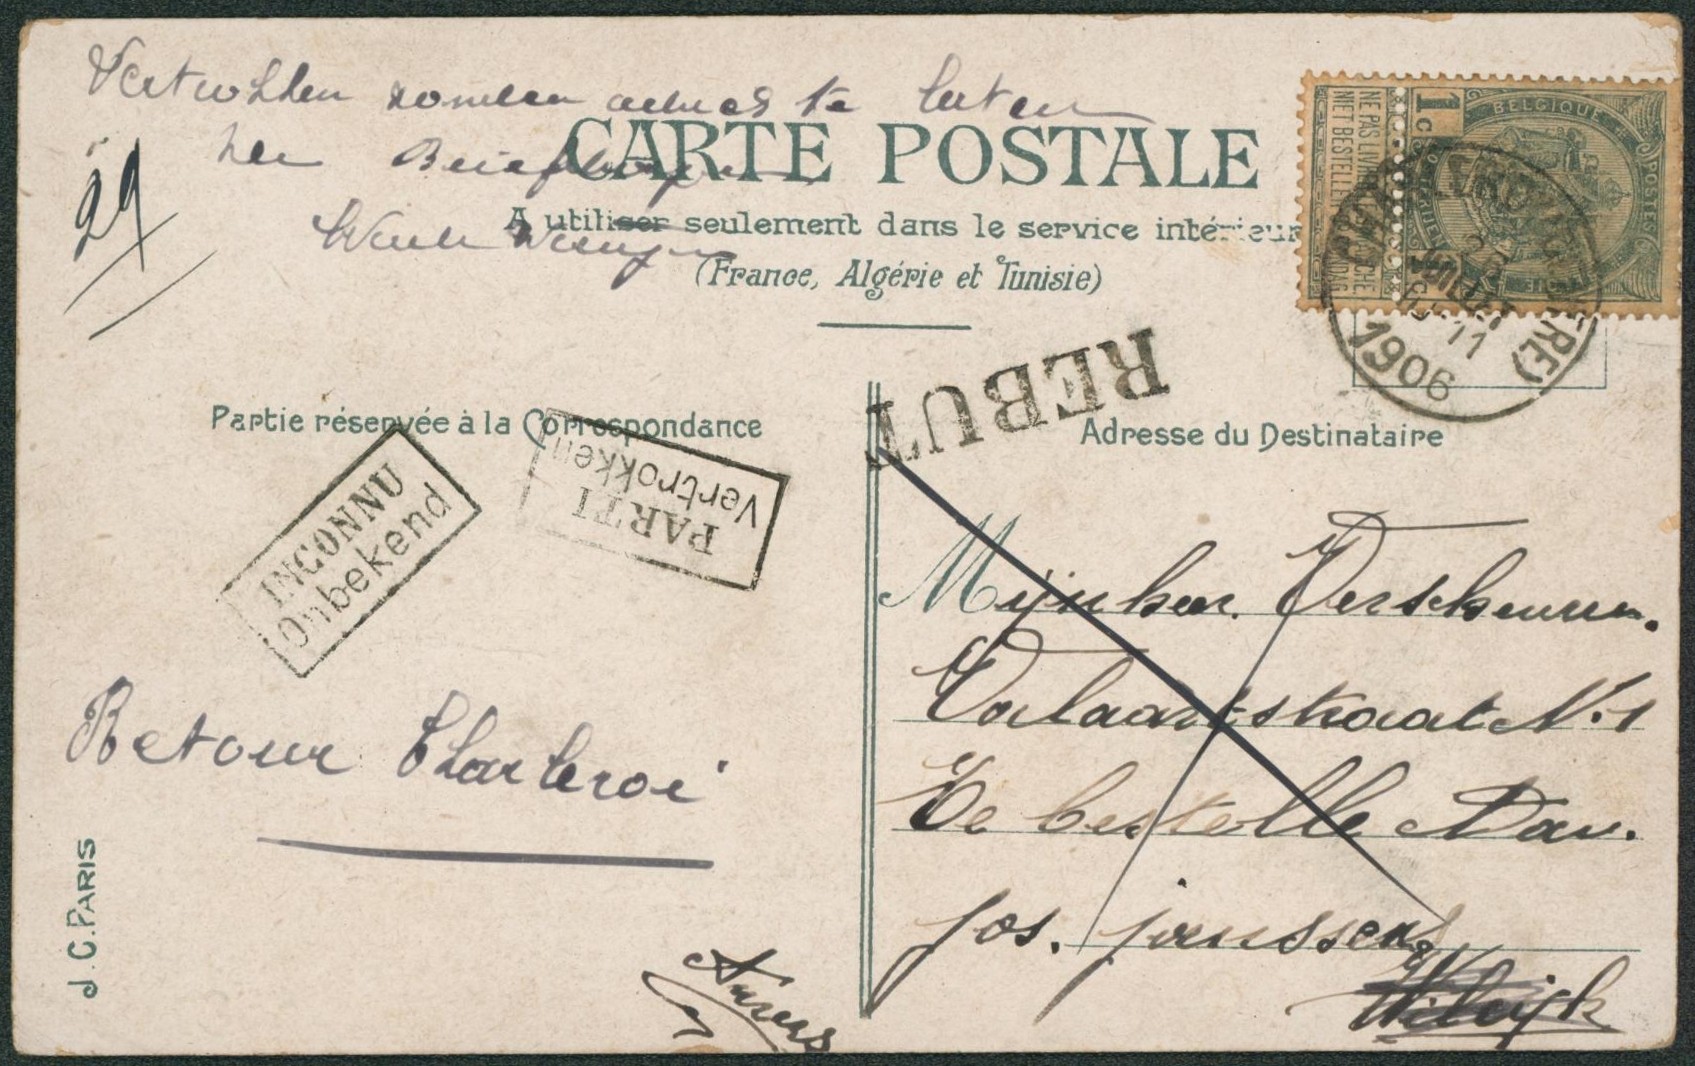 Vertrokken zonder adres te laten
den Briefdrager
29
CARTE POSTALE
A utiliser seulement dans le service intérieur
(France, Algérie et Tunisie)
BELGIQUE
POSTES
1 c
NE PAS LIVRER
NIET BESTELLEN
1906
11
REBUT
Partie réservée à la Correspondance
Adresse du Destinataire
INCONNU
Onbekend
PARTI
Vertrokken
Mijnheer
N. 1
Te bestelle Dav.
Jos. Janssens
Wilrijk
Retour Charleroi
Anvers
J. C. PARIS